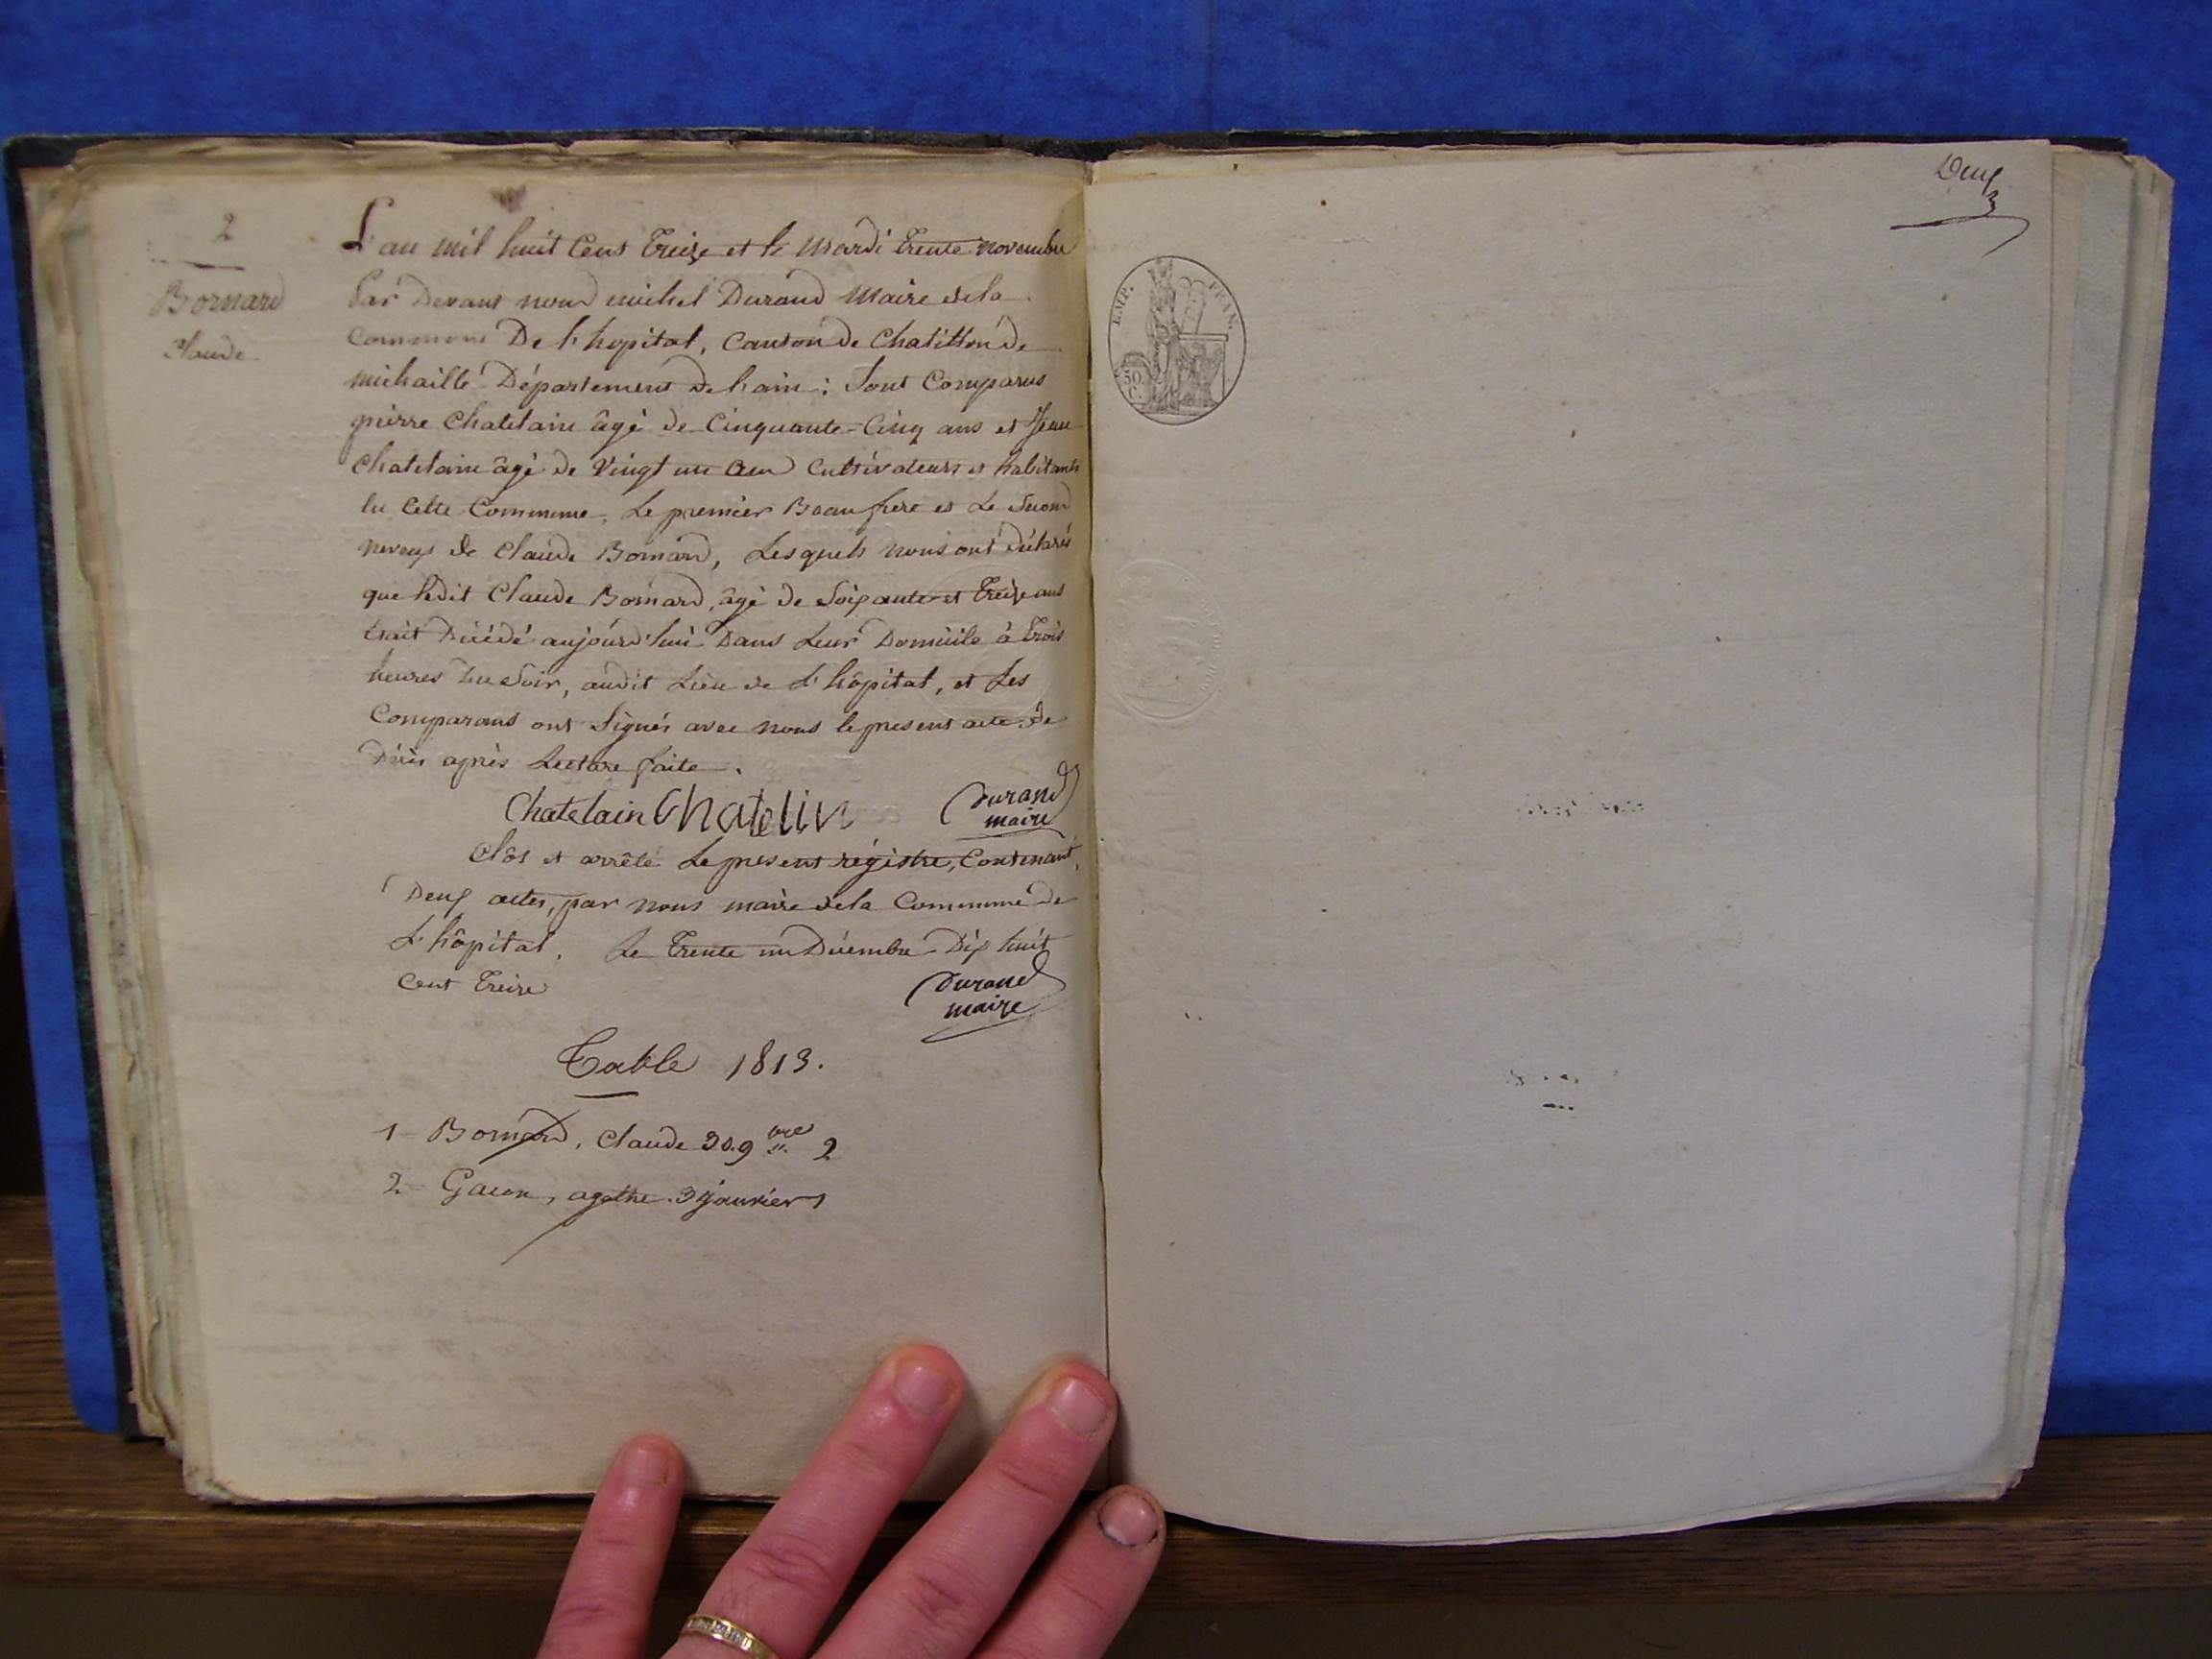 2
Bornard
Claude
L'an mil huit Cent Treize et le Mardi Trente novembre
Par Devant nous michel Durand Maire dela
Commune De l'hopital, Canton de Chatillon de
michaille Département de hain; Sont Comparus
pierre Chatelain âgé de Cinquante-Cinq ans et Jean
Chatelain âgé de Vingt un ans Cultivateurs et habitants
en Cette Commune, Le premier Beaufrere et Le Second
neveux de Claude Bornard, Lesquels nous ont déclarés
que ledit Claude Bornard, âgé de Soixante et Treize ans
Décédé aujourd'hui Dans Leur Domicile à Trois
heures du Soir, audit Lieu de L'hôpital, et Les
Comparans ont Signés avec nous le present acte de
Décès après Lecture faite.
Chatelain Chatelin Durand
maire
Clôs et arrêté Le present régistre, Contenant,
Deux actes, par nous maire dela Commune de
L'hôpital. Le Trente un Décembre Dix huit
Cent Treize
Durand
maire
Table 1813.
1 Bornard, Claude 30. 9bre 2
2 Gacon, agathe janvier 1
Deux
EMP. FRAN.
50
C.